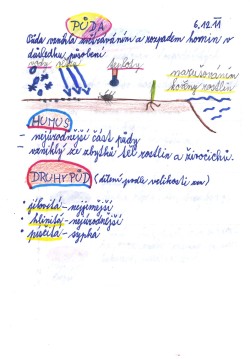 PŮDA
6.12.11
Půda vznikla zvětráváním a rozpadem hornin v
důsledku působení
vody větru teploty narušováním
kořeny rostlin
HUMUS
- nejúrodnější část půdy
- vzniklý ze zbytků těl rostlin a živočichů.
DRUHY PŮD (dělení podle velikosti zrn)
• jílovitá - nejjemnější
• hlinitá - nejúrodnější
• písčitá - sypká